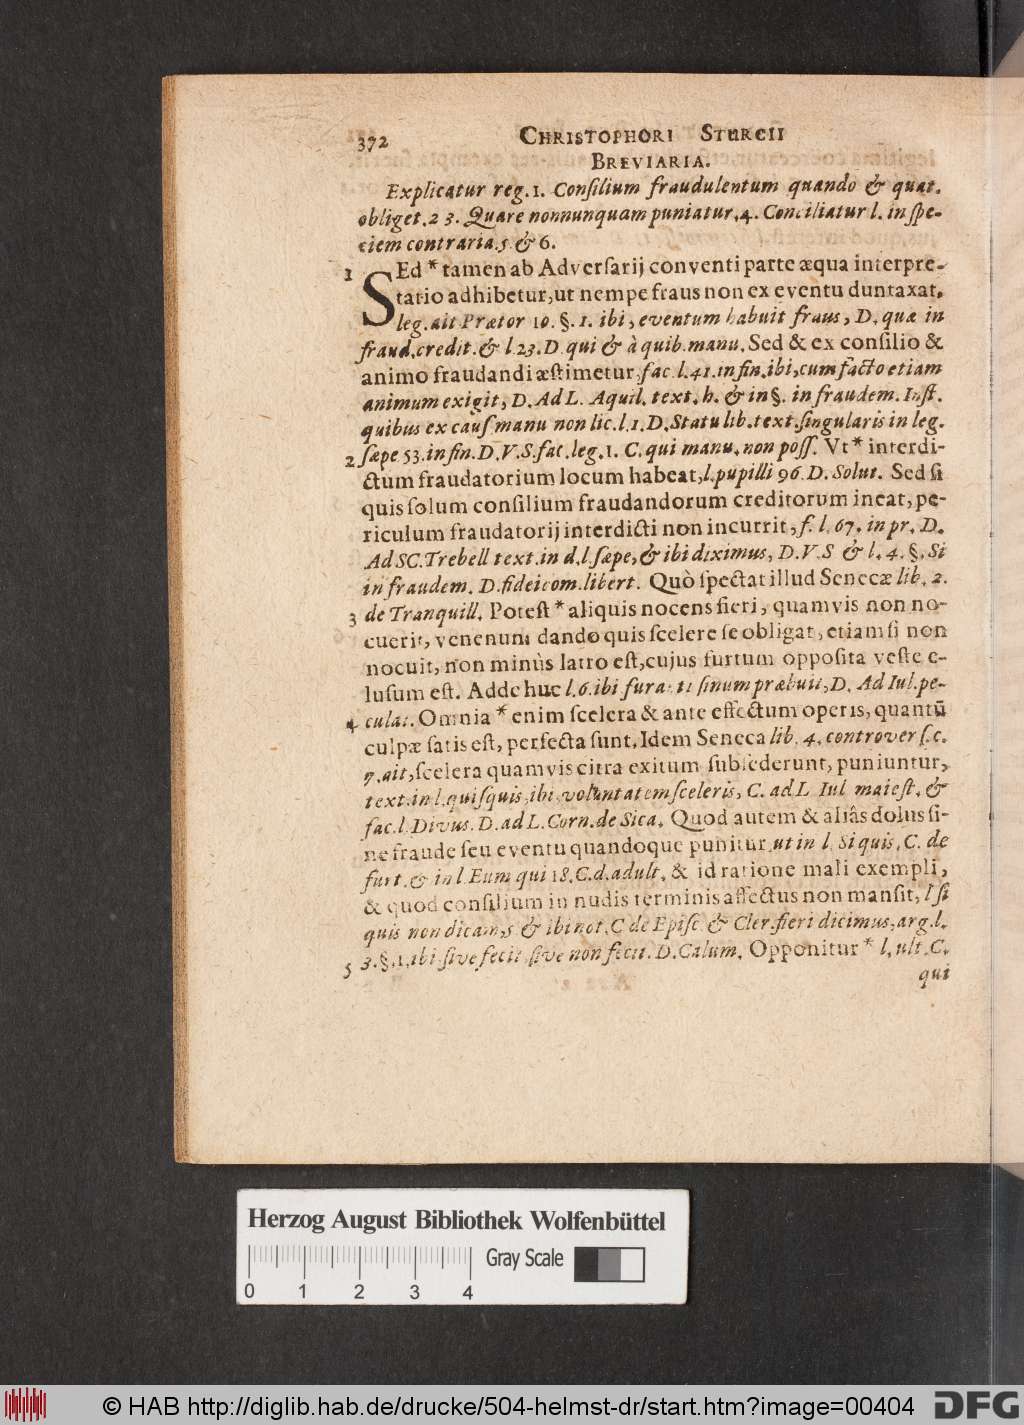 372 CHRISTOPHORI STURCII
BREVIARIA.
Explicatur reg. 1. Conſilium fraudulentum quando & quat.
obliget. 2 3. Quare nonnunquam puniatur. 4. Conciliatur l. in ſpe-
ciem contraria. 5. & 6.
1 SEd * tamen ab Adverſarij conventi parte æqua interpre-
tatio adhibetur, ut nempe fraus non ex eventu duntaxat.
leg. ait Prætor 10. §. 1. ibi, eventum habuit fraus, D. quæ in
fraud. credit. & l. 23. D. qui & à quib. manu. Sed & ex conſilio &
animo fraudandi æſtimetur, fac. l. 41. in fin. ibi, cum facto etiam
animum exigit, D. Ad L. Aquil. text. h. & in §. in fraudem. Inſt.
quibus ex cauſ. manu non lic. l. 1. D. Statu lib. text. ſingularis in leg.
2 ſæpe 53. in fin. D. V. S. fac. leg. 1. C. qui manu. non poſſ. Vt * interdi-
ctum fraudatorium locum habeat, l. pupilli 96. D. Solut. Sed ſi
quis ſolum conſilium fraudandorum creditorum ineat, pe-
riculum fraudatorij interdicti non incurrit, f. l. 67. in pr. D.
Ad SC. Trebell text. in d. l. ſæpe, & ibi diximus, D. V. S & l. 4. §. Si
in fraudem. D. fideicom. libert. Quò ſpectat illud Senecæ lib. 2.
3 de Tranquill. Poteſt * aliquis nocens fieri, quamvis non no-
cuerit, venenum dando quis ſcelere ſe obligat, etiamſi non
nocuit, non minùs latro eſt, cujus furtum oppoſita veſte e-
luſum eſt. Adde huc l. 6. ibi furanti ſinum præbuit, D. Ad Iul. pe-
4 culat. Omnia * enim ſcelera & ante effectum operis, quantũ
culpæ ſatis eſt, perfecta ſunt. Idem Seneca lib. 4. controverſ. c.
7. ait, ſcelera quamvis citra exitum ſubſederunt, puniuntur,
text. in l. quiſquis, ibi, voluntatem ſceleris, C. ad L. Iul. maieſt. &
fac. l. Divus. D. ad L. Corn. de Sica. Quod autem & aliâs dolus ſi-
ne fraude ſeu eventu quandoque punitur, ut in l. Si quis. C. de
furt. & in l. Eum qui 18. C. d. adult. & id ratione mali exempli,
& quod conſilium in nudis terminis affectus non manſit, l ſi
quis non dicam, 5. & ibi not. C de Epiſc. & Cler. fieri dicimus, arg. l.
5 3. §. 1. ibi ſive fecit, ſive non fecit. D. Calum. Opponitur * l. ult. C.
qui
Herzog August Bibliothek Wolfenbüttel
Gray Scale
0 1 2 3 4
© HAB http://diglib.hab.de/drucke/504-helmst-dr/start.htm?image=00404
DFG